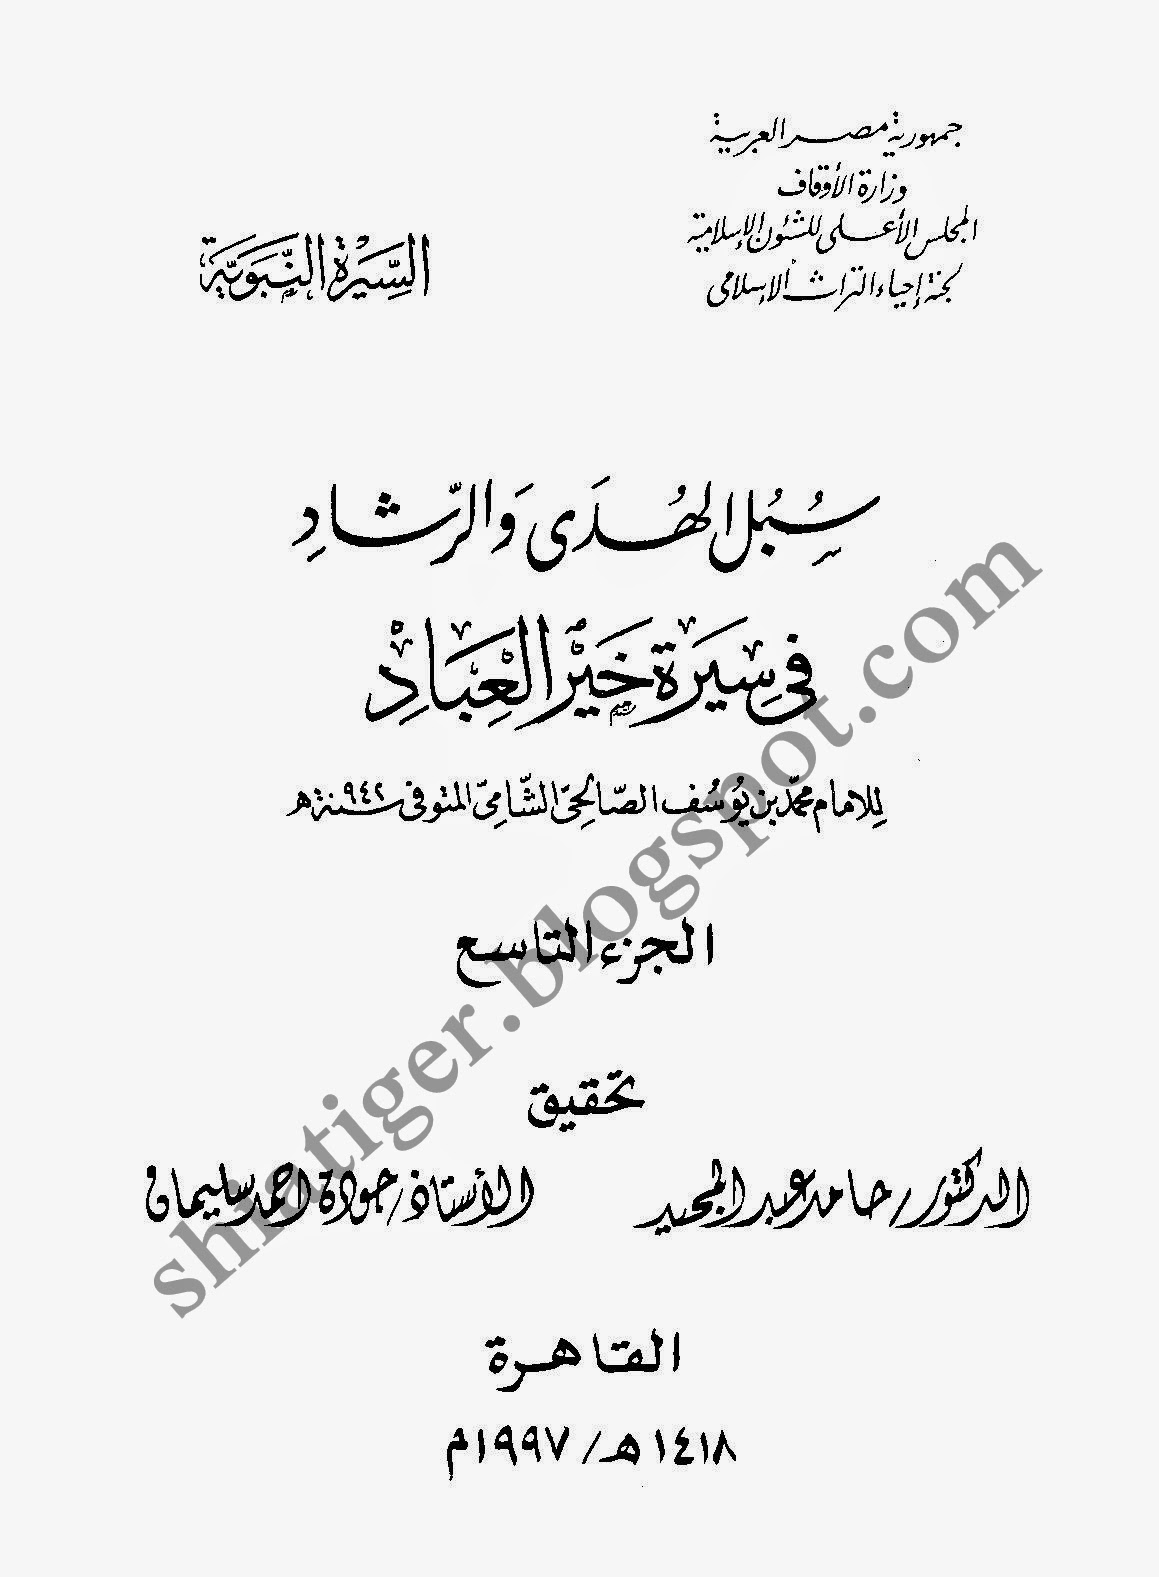 جمهورية مصر العربية
وزارة الأوقاف
المجلس الأعلى للشئون الإسلامية
لجنة إحياء التراث الإسلامى
السِّيْرَة النَّبَوِيَّة
سُبُل الهُدَى وَالرَّشادِ
فِى سِيْرَة خَيْر العِبَادِ
للإمام محمّد بن يُوسُف الصّالحِىّ الشّامِىّ المتوفى سنة ٩٤٢ هـ
الجزء التاسع
تحقيق
الدكتور / حامد عبد المجيد
الأستاذ / جودة احمد سليمان
القاهرة
١٤١٨ هـ / ١٩٩٧م
shiatiger.blogspot.com